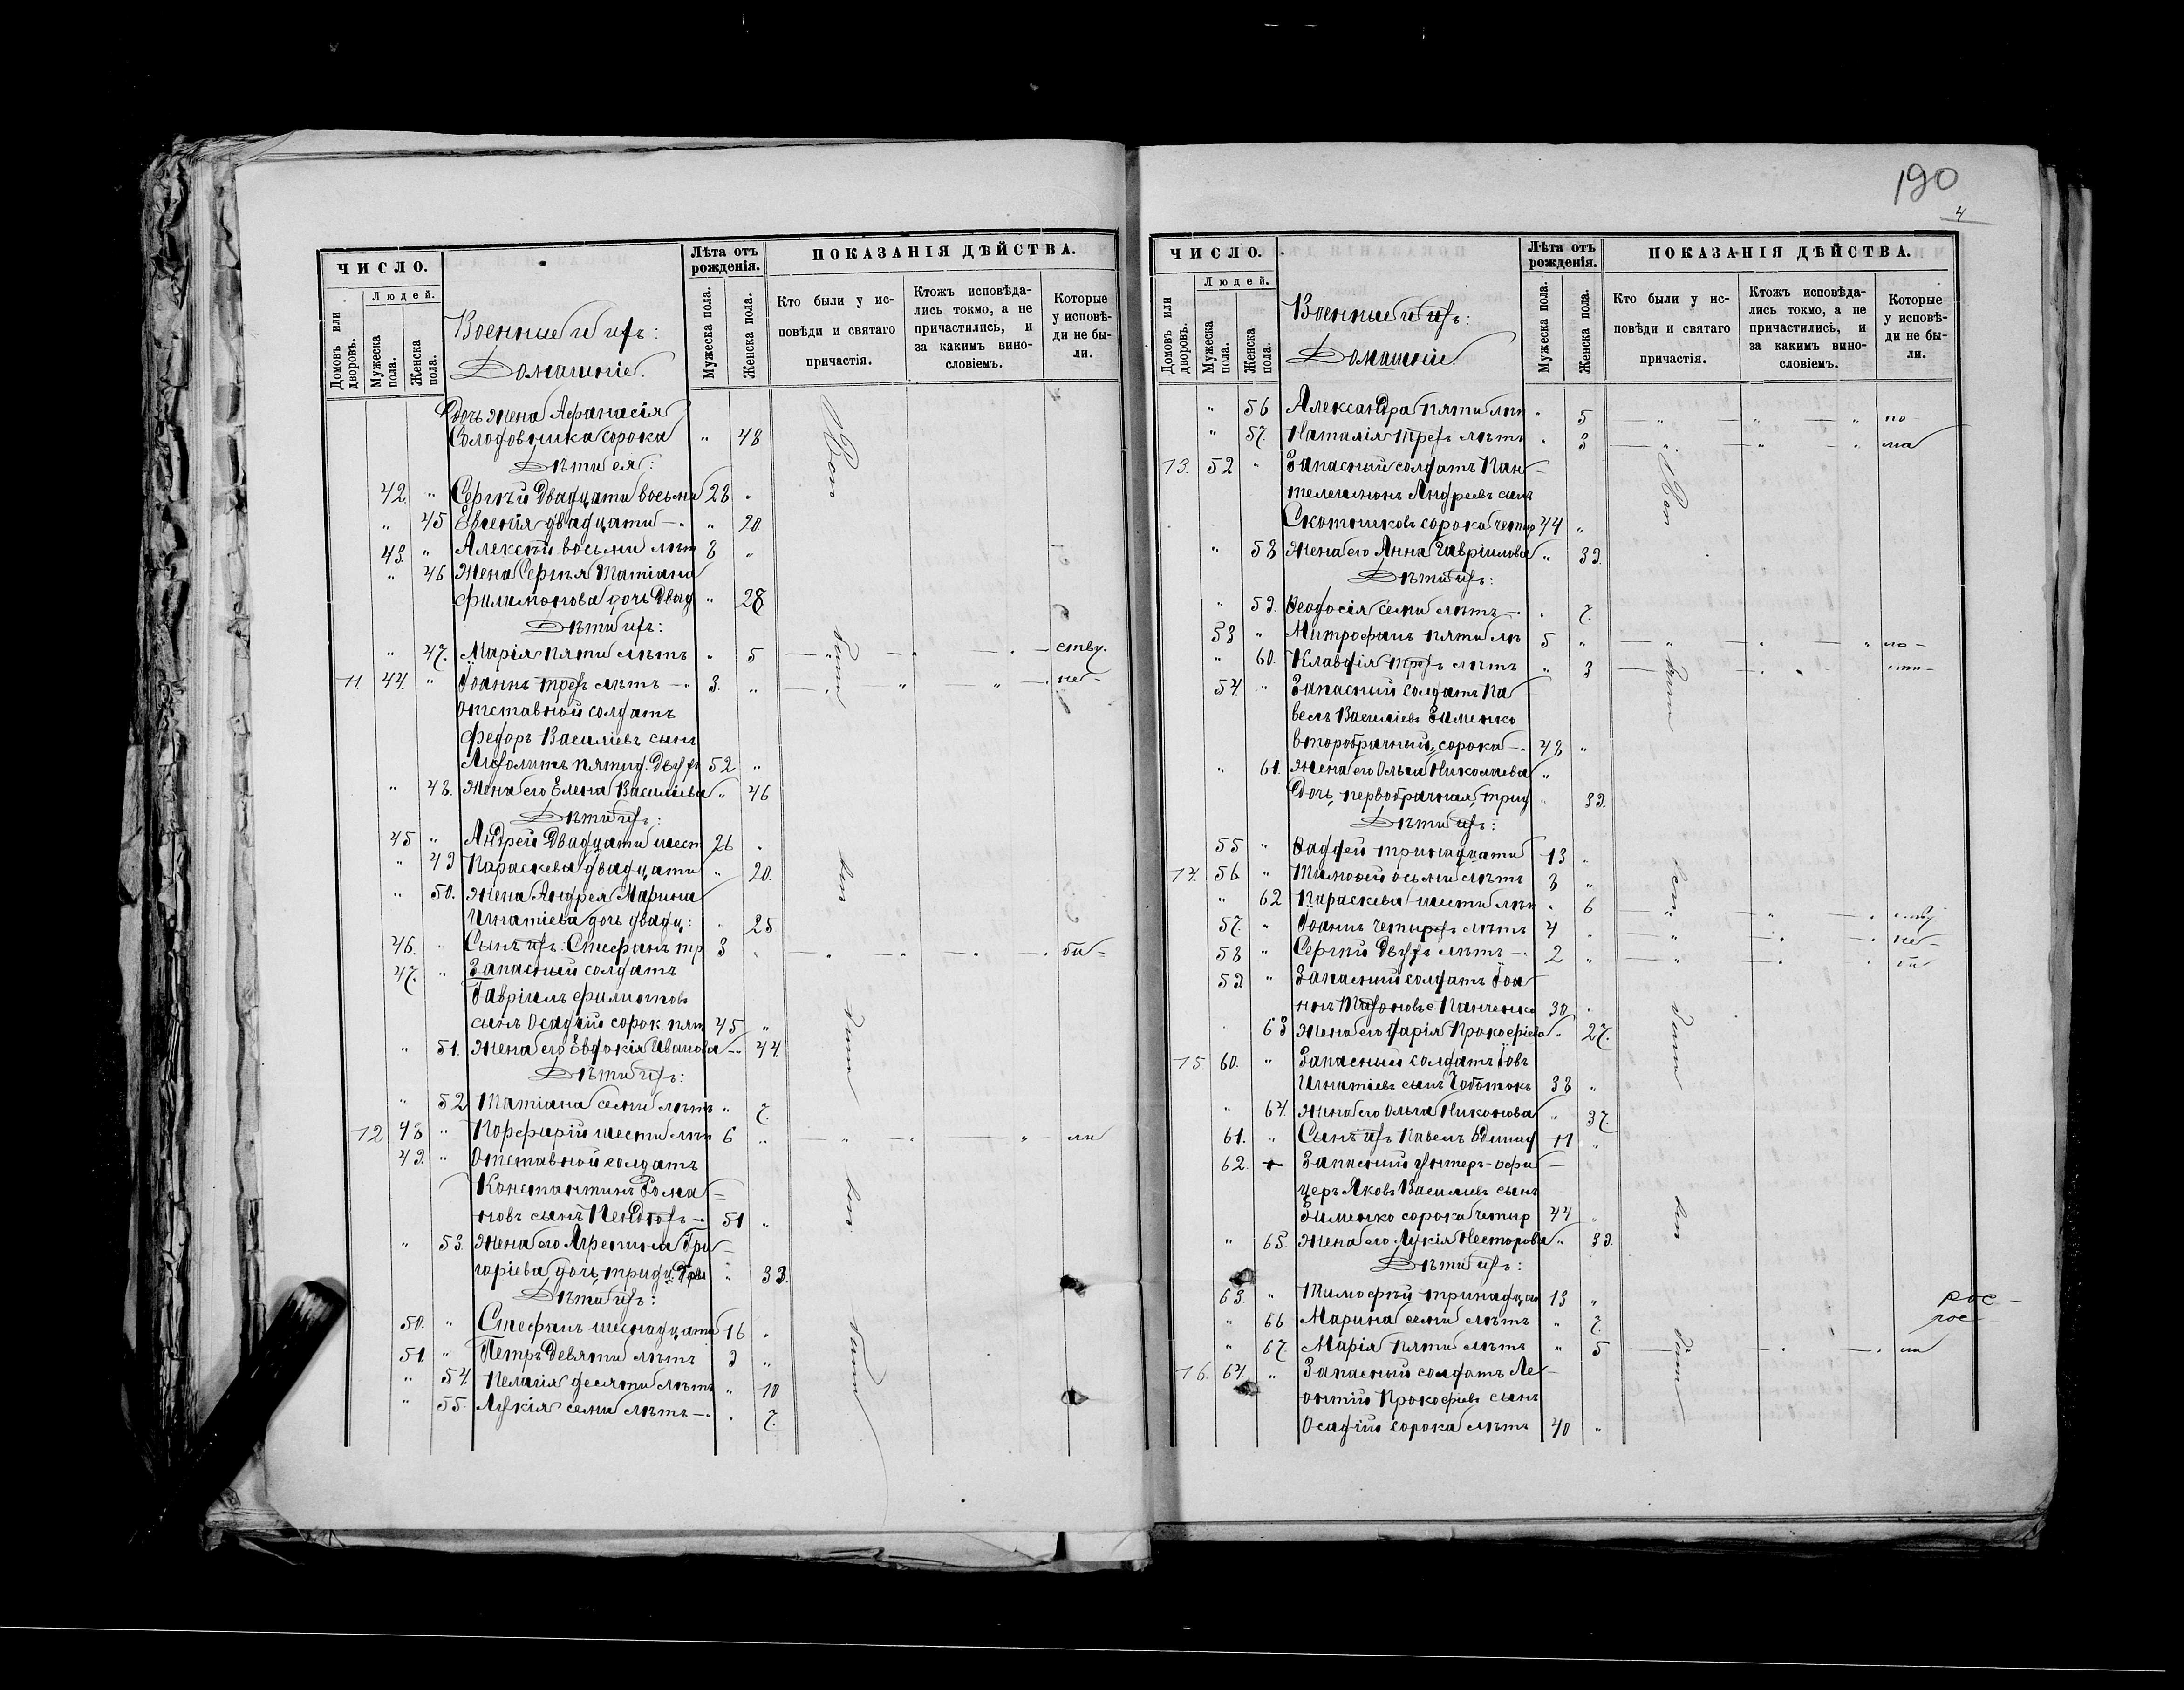 190
4
ЧИСЛО.
Людей.
Домовъ или дворовъ.
Мужеска пола.
Женска пола.
Военные и ихъ:
Домашніе.
Лѣта отъ рожденія.
Мужеска пола.
Женска пола.
ПОКАЗАНІЯ ДѢЙСТВА.
Кто были у исповѣди и святаго причастія.
Ктожъ исповѣдались токмо, а не причастились, и за какимъ винословіемъ.
Которые у исповѣди не были.
дочь жена Афанасія
Солодовника сорока " 48
Дѣти ея:
42. " Сергѣй двадцати восьми 28 "
" 45 Евгенія двадцати " 20
43. " Алексѣй восьми лѣт 8 "
" 46 Жена Сергѣя Татіана
Филимонова дочь двад " 28
Дѣти ихъ:
" 47. Марія пяти лѣтъ " 5
11. 44. " Іоаннъ трехъ лѣтъ 3. " не-
Отставной солдатъ
Федоръ Василіевъ сынъ
пятид. двухъ 52 "
" 48. Жена его Елена Василіева " 46
Дѣти ихъ:
45 " Андрей двадцати шест 26 "
" 49 Параскева двадцати " 20.
" 50. Жена Андрея Марина
Игнатіева дочь двадц: " 25
46. " Сынъ ихъ: Стефанъ тр 3 "
47. " Запасный солдатъ
Гавріилъ Филиповъ
сынъ Осадчій сорок. пят 45 "
" 51. Жена его Евдокія Иванова " 44.
Дѣти ихъ:
" 52 Татіана семи лѣтъ " 7.
12 48 " Порфирій шести лѣт 6 " ли
49. " Отставной солдатъ
Константинъ Рома=
новъ сынъ 51 "
" 53. Жена его Агрепина Гри-
горіева дочь тридц. три " 33.
Дѣти ихъ:
50. " Стефанъ шеснадцати 16 "
51 " Петръ девяти лѣтъ 9 "
" 54. Пелагія десяти лѣтъ " 10
" 55. Лукія семи лѣтъ " 7.
ЧИСЛО.
Людей.
Домовъ или дворовъ.
Мужеска пола.
Женска пола.
Военные и ихъ:
Домашніе.
Лѣта отъ рожденія.
Мужеска пола.
Женска пола.
ПОКАЗАНІЯ ДѢЙСТВА.
Кто были у исповѣди и святаго причастія.
Ктожъ исповѣдались токмо, а не причастились, и за какимъ винословіемъ.
Которые у исповѣди не были.
" 56 Александра пяти лѣт " 5 " " " по-
" 57. Наталія трехъ лѣтъ " 3 " " "
13. 52 " Запасный солдатъ Пан-
телеимонъ Андреевъ сынъ
Скотниковъ сорока четыр 44 "
" 58 Жена его Анна Гавріилова " 39.
Дѣти ихъ:
" 59. Ѳеодосія семи лѣтъ " 7.
53 " Митрофанъ пяти лѣ 5 " по-
" 60. Клавдія трехъ лѣтъ " 3
54. " Запасный солдатъ Па
велъ Василіевъ Зименко
второбрачный, сорока 48 "
" 61. Жена его Ольга Николаева "
дочь, первобрачная, трид " 39.
Дѣти ихъ:
55 " Ѳаддей тринадцати 13 "
14. 56 " Тимоѳей осьми лѣтъ 8 "
" 62 Параскева шести лѣт " 6
57. " Іоаннъ четырехъ лѣтъ 4 " не-
58 " Сергѣй двухъ лѣтъ 2 "
59 " Запасный солдатъ Іоа
ннъ Панченко 30 "
" 63 Жена его Дарія Прокофіева " 27.
15 60. " Запасный солдатъ Іовъ
Игнатіевъ сынъ Чоботокъ 38 "
" 64. Жена его Ольга Никонова " 37.
61. " Сынъ ихъ Павелъ одинад 11 "
62. Запасный унтеръ-офи-
церъ Яковъ Василіевъ сынъ
Зименко сорока четыр 44 "
" 65. Жена его Лукія Несторова " 39.
Дѣти ихъ:
63. " Тимофѣй тринадцат 13 "
" 66 Марина семи лѣтъ " 7.
" 67. Марія пяти лѣтъ " 5
16. 64. " Запасный солдатъ Ле-
онтій Прокофіевъ сынъ
Осадчій сорока лѣтъ 40 "